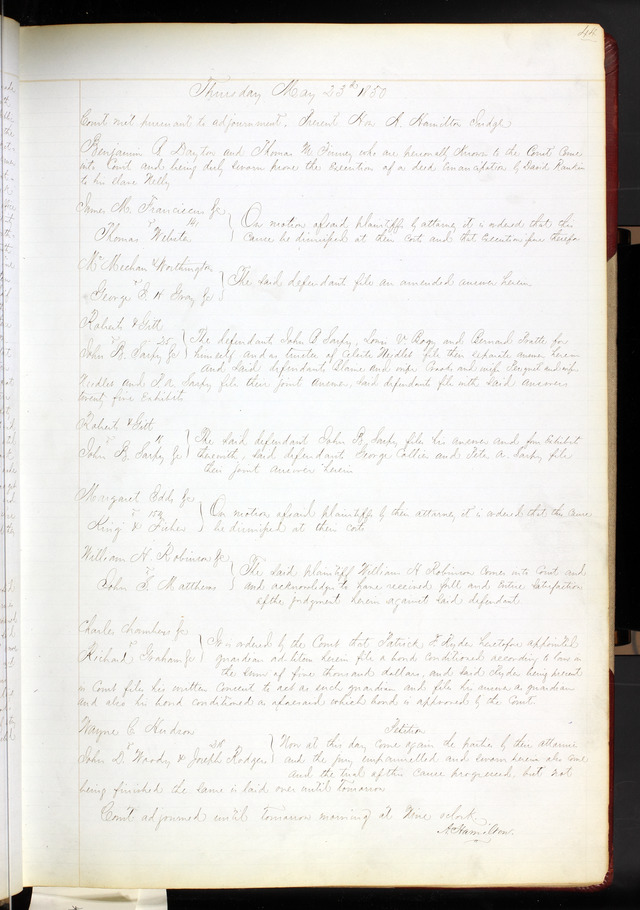 44
Thursday May 23th 1850
Court met pursuant to adjournment. Present Hon A. Hamilton Judge
Benjamin A Dayton and Thomas M. Finney who are personally Known to the Court Come
into Court and being duly sworn prove the execution of a deed Emancipation by David Rankin
to his slave Nelly
James M. Franciscus &c
vs 141
Thomas Webster
On motion of said plaintiffs by attorney it is ordered that this
cause be dismissed at their costs and that Execution issue therefor
McMechan & Worthington
vs
George E. H. Gray &c
The said defendant files an amended answer herein.
Roberts &
vs 25
John B. Sarpy &c
The defendants John B Sarpy, Louis V. Bogy and Bernard Pratte for
himself and as trustee of Celeste Needles file their separate answer herein
And said defendant Blaine and wife and wife and wife
Needles and P A Sarpy file their joint answer, said defendants file with said answers
twenty five exhibits
Robert &
vs
John B. Sarpy &c
The said defendant John B. Sarpy files his answer and five Exhibit
therewith, said defendants George Collier and Pete A. Sarpy file
their joint answer herein
Margaret Eddy &c
vs 152
King & Fisher
On motion of said plaintiffs by their attorney it is ordered that this cause
be dismissed at their costs
William H. Robinson &c
vs
John S. Matthews
The said plaintiff William H Robinson comes into Court and
and acknowledges to have received full and entire satisfaction
of the judgment herein against said defendant
Charles Chambers &c
vs
Richard Graham &c
It is ordered by the Court that Patrick T Hyder heretofore appointed
guardian ad litem herein file a bond conditioned according to law in
the sum of five thousand dollars, and said Hyder being present
in Court files his written Consent to act as such guardian and files his answer as guardian
and also his bond conditioned as aforesaid which bond is approved by the Court
Wayne C Hudson
vs 28
John D. Woods & Joseph Rodgers
Petition
Now at this day come again the parties by their attornies
and the jury empannelled and sworn herein also come
And the trial of this cause progressed, but not
being finished the same is laid over until tomorrow
Court adjourned until tomorrow morning at Nine oclock.
A Hamilton.